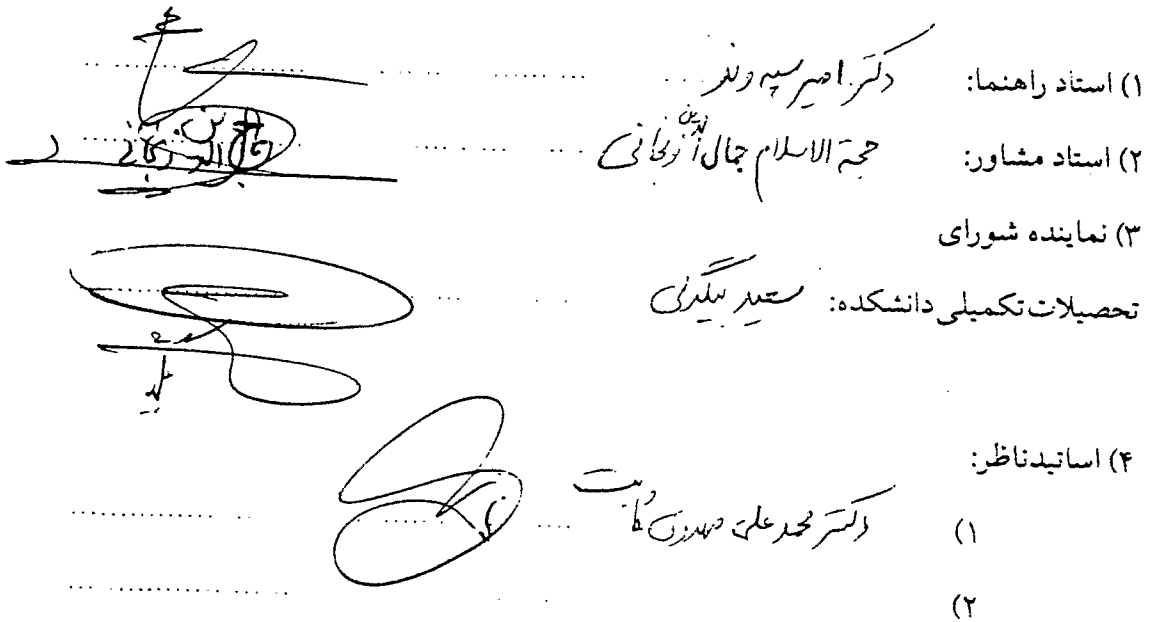 ۱) استاد راهنما: دکتر امیر سپه وند
۲) استاد مشاور: حجة الاسلام جمال الدین زنجانی
۳) نماینده شورای
تحصیلات تکمیلی دانشکده: سعید بیگدلی
۴) اساتیدناظر:
۱) دکتر محمد علی مهدوی ثابت
۲)